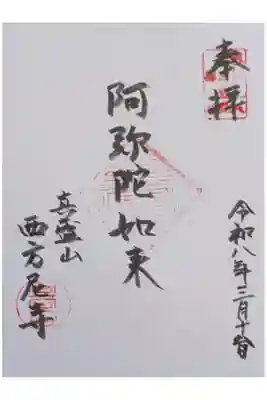 奉拝
令和八年三月十一日
阿弥陀如来
真盛山
西方尼寺